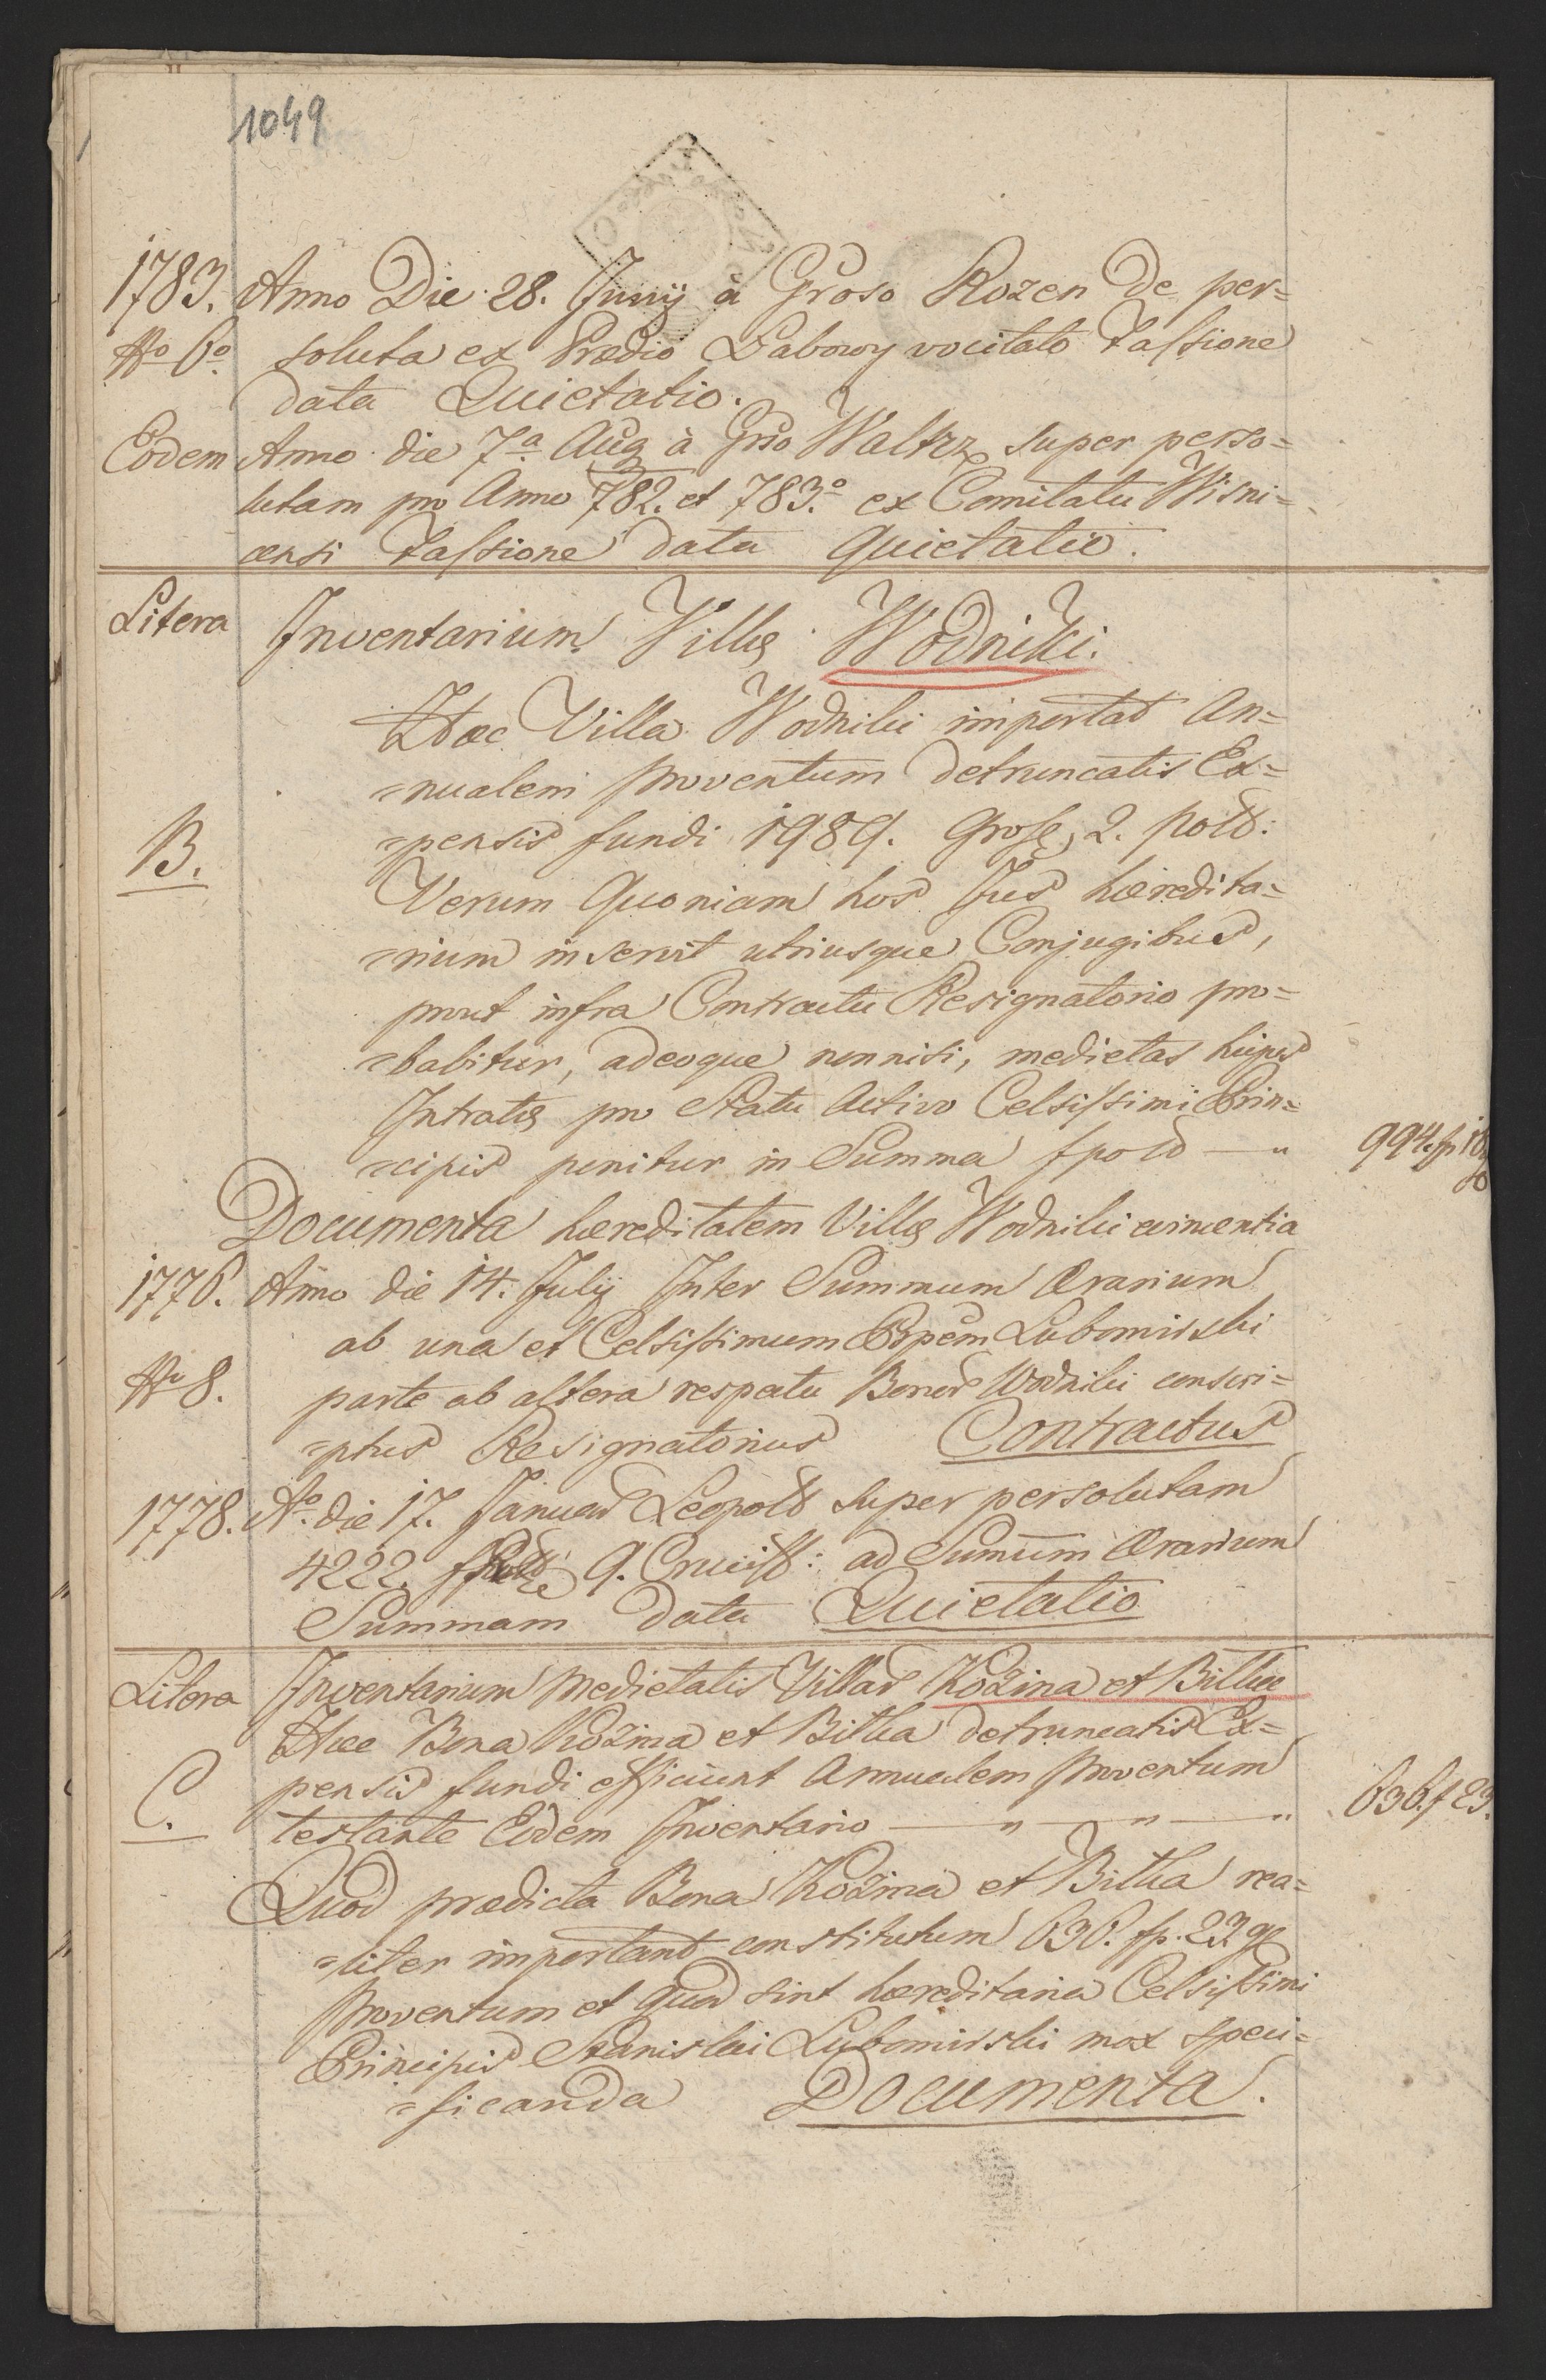 1049
1783. Anno Die 28. Junij à Groso Rozen De per=
No 6o soluta ex Prædio Labowy vocitato taxsione
data Quietatio.
Eodem Anno die 7a Aug à Grso Waltrz super perso=
lutam pro Anno 782. et 783.o ex Comitatu Wisni=
censi taxsione data Quietatio.
Litera Inventarium Villæ Wodniki.
Hæc Villa Wodniki importat An=
=nualem proventum detruncatis Ex=
B. =pensis fundi 1989. Grosę, 2. pold:
Verum Quoniam hos Jus hæredita=
=rium inservit utriusque Conjugibus,
prout infra Contractu Resignatorio pro=
=babitur, adeoque nonnisi, medietas hujus
Intratæ pro Statu Activo Celsissimi Prin=
=cipis ponitur in Summa fpold — " 994. fp 16
Documenta hæreditatem Villæ Wodniki evincentia
1776. Anno die 14. Julij Inter Summum Ærarium
ab una et Celsissimum Prpem Lubomirski
No 8. parte ab altera respectu Bonor Wodniki conscri=
=ptus Resignatorius Contractus
1778. Ao. die 17. Januar Leopold super persolutam
4222. 9. Cruciff: ad Sumum Ærarium
Summam data Quietatio
Litera Inventarium Medietatis Villar Kozina et Bitka
Hæc Bona Kozina et Bitka detruncatis Ex=
pensis fundi efficiunt Annualem proventum
C. testante Eodem Inventario — " — " — " 636. f 23.
Quod prædicta Bona Kozina et Bitka rea=
=liter important constitutum 636. fp. 23. g
proventum et quod sint hæreditaria Celsissimi
Principis Stanislai Lubomirski mox speci=
=ficanda Documenta.